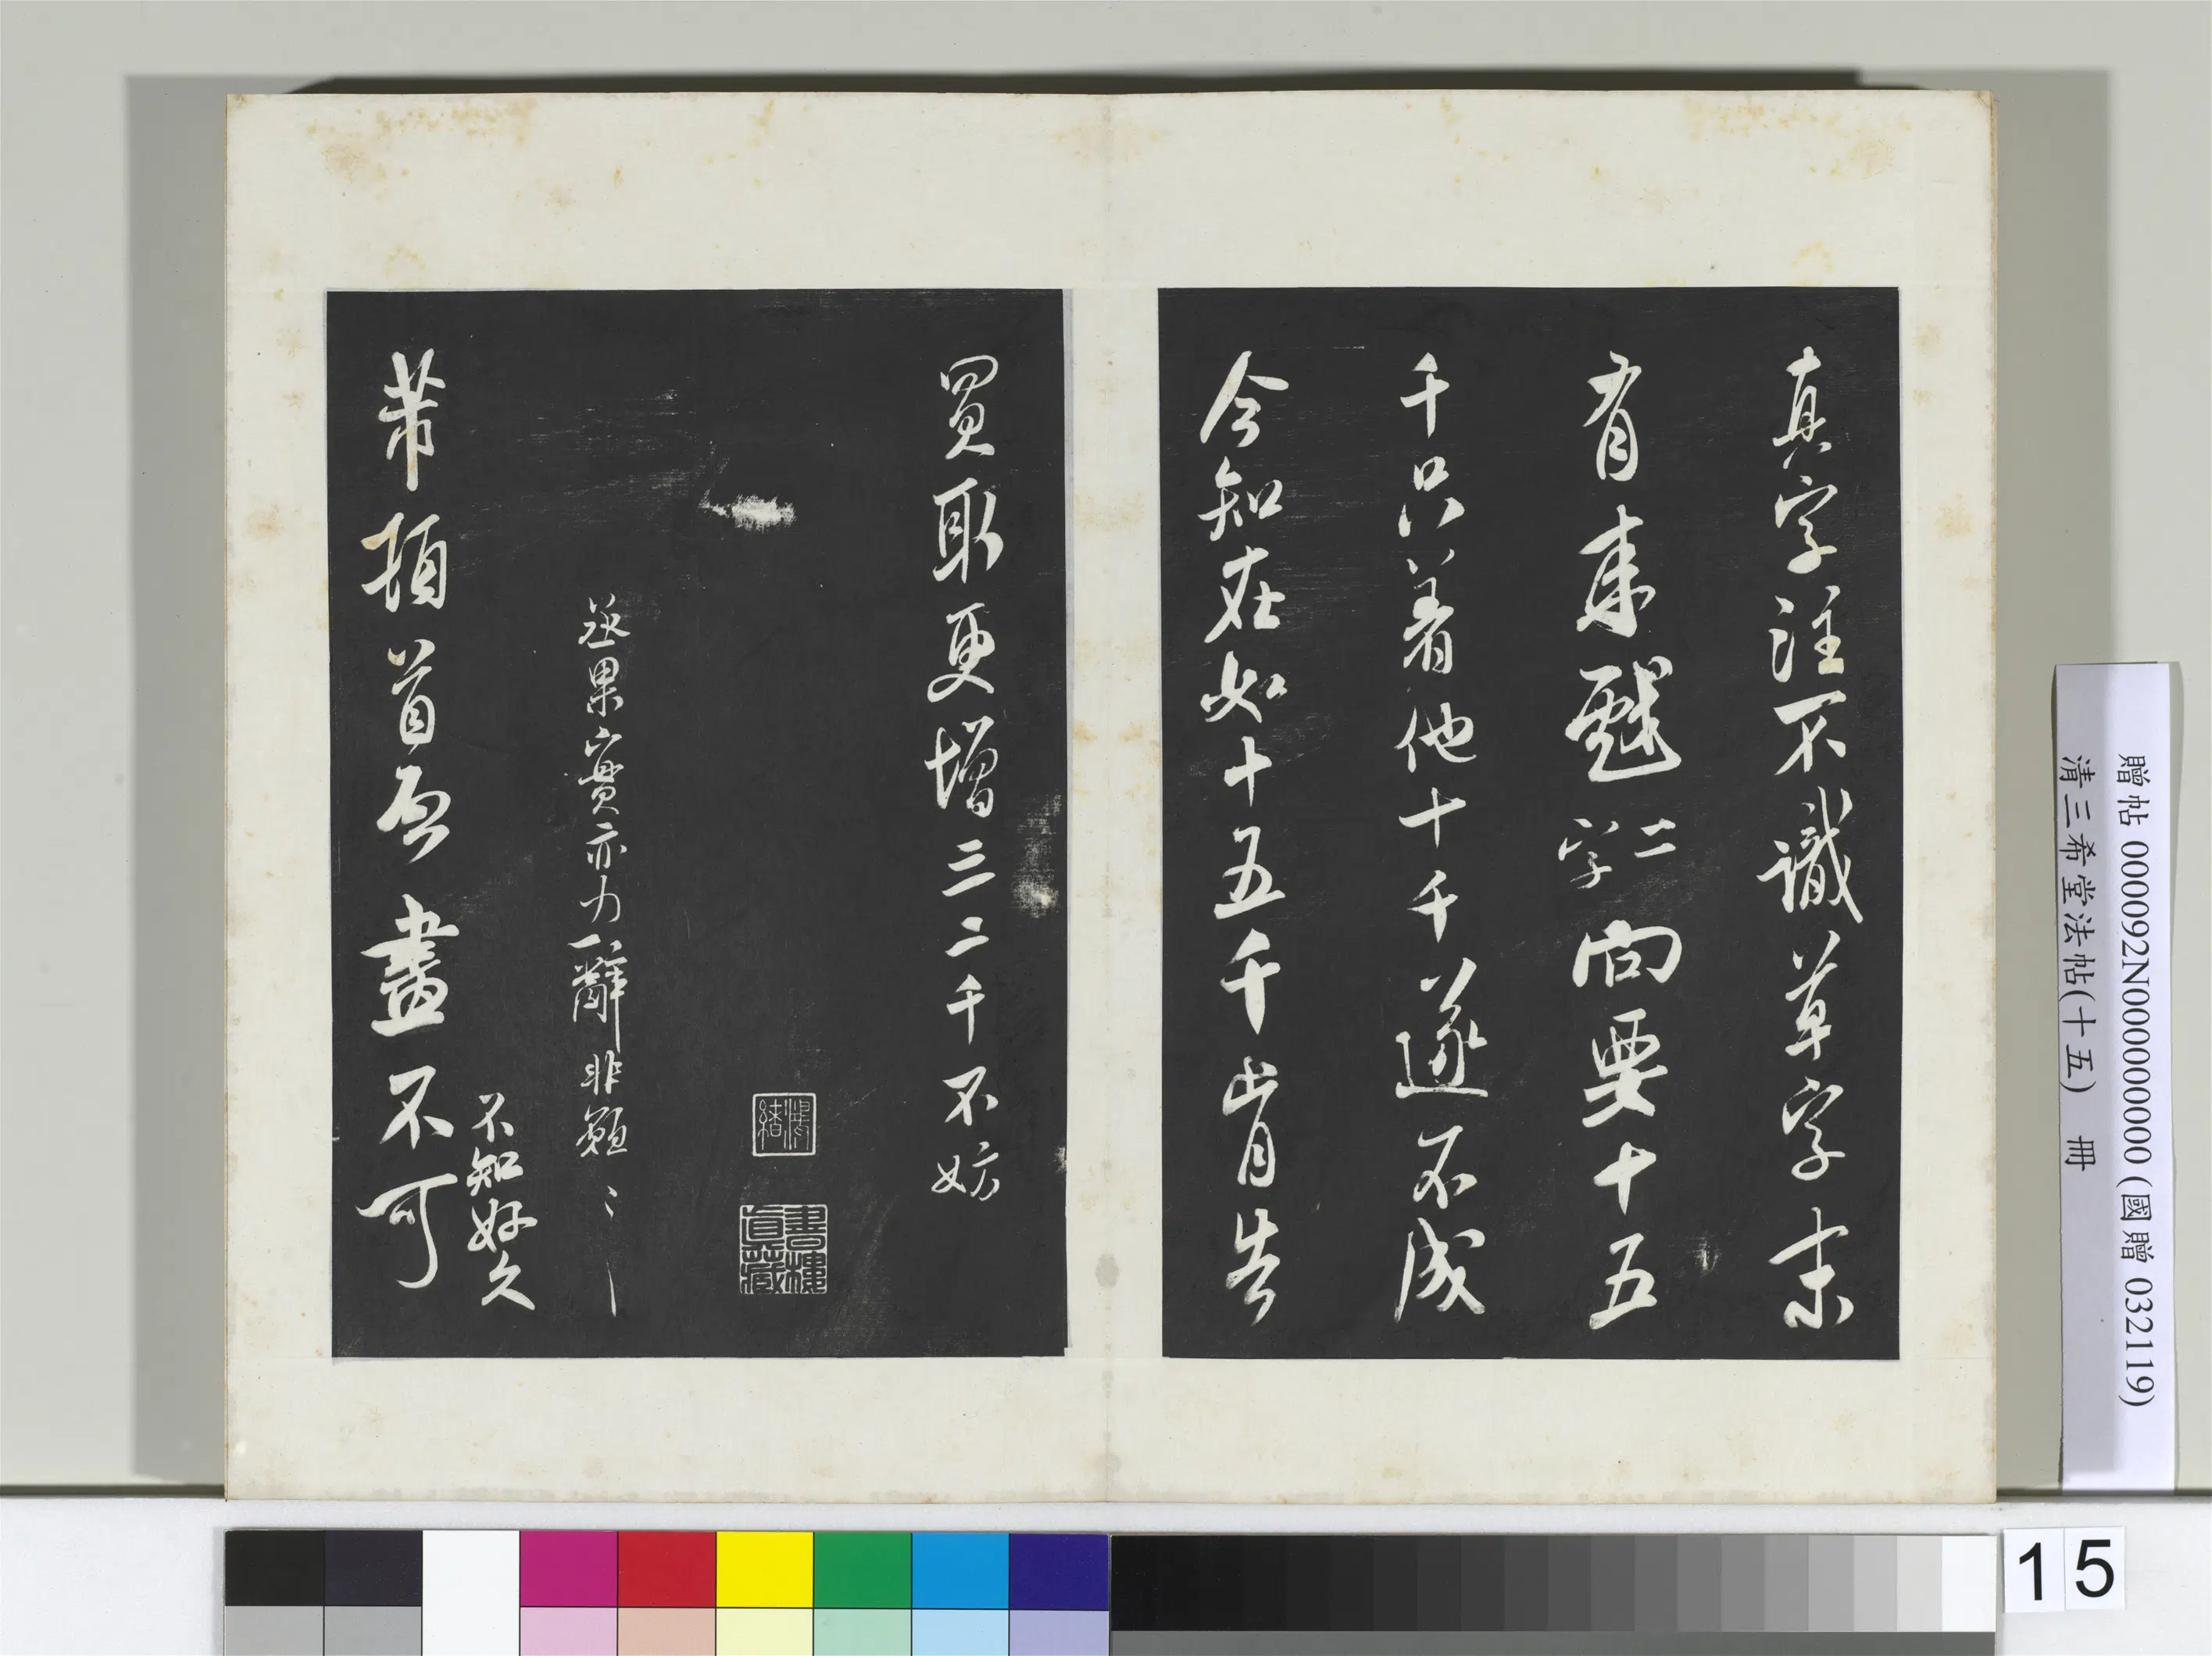 真字注不識草字末
有來戲二字向要十五
千只著他十千遂不成
今知在如十五千肯告
買取更增三二千不妨
丞果實亦力辭非願〻
不知好久
芾頓首再啟
芾頓首启盡不可
書樓真藏
贈帖 000092N000000000 (國贈 032119)
清三希堂法帖(十五) 冊
15